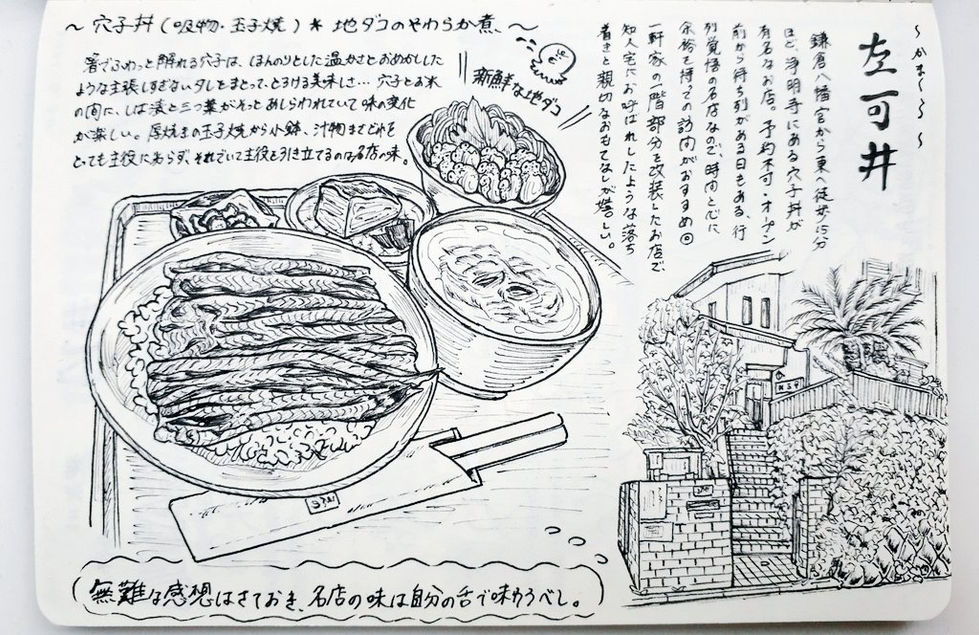 〜かまくら〜
左可井
鎌倉八幡宮から東へ徒歩15分
ほど、浄明寺にある穴子丼が
有名なお店。予約不可・オープン
前から待ち列がある日もある、行
列覚悟の名店なので、時間と心に
余裕を持っての訪問がおすすめ◎
一軒家の一階部分を改装したお店で
知人宅にお呼ばれしたような落ち
着きと親切なおもてなしが嬉しい。
〜穴子丼(吸物・玉子焼)* 地ダコのやわらか煮〜
箸でふわっと解れる穴子は、ほんのりとした温かさとおめかしした
ような主張しすぎないタレをまとって、とろける美味しさ… 穴子とお米
の間に、しば漬と三つ葉がそっとあしらわれていて味の変化
が楽しい。厚焼きの玉子焼から小鉢、汁物までどれを
とっても主役にならず、それでいて主役を引き立てるのは名店の味。
新鮮な地ダコ
無難な感想はさておき、名店の味は自分の舌で味わうべし。